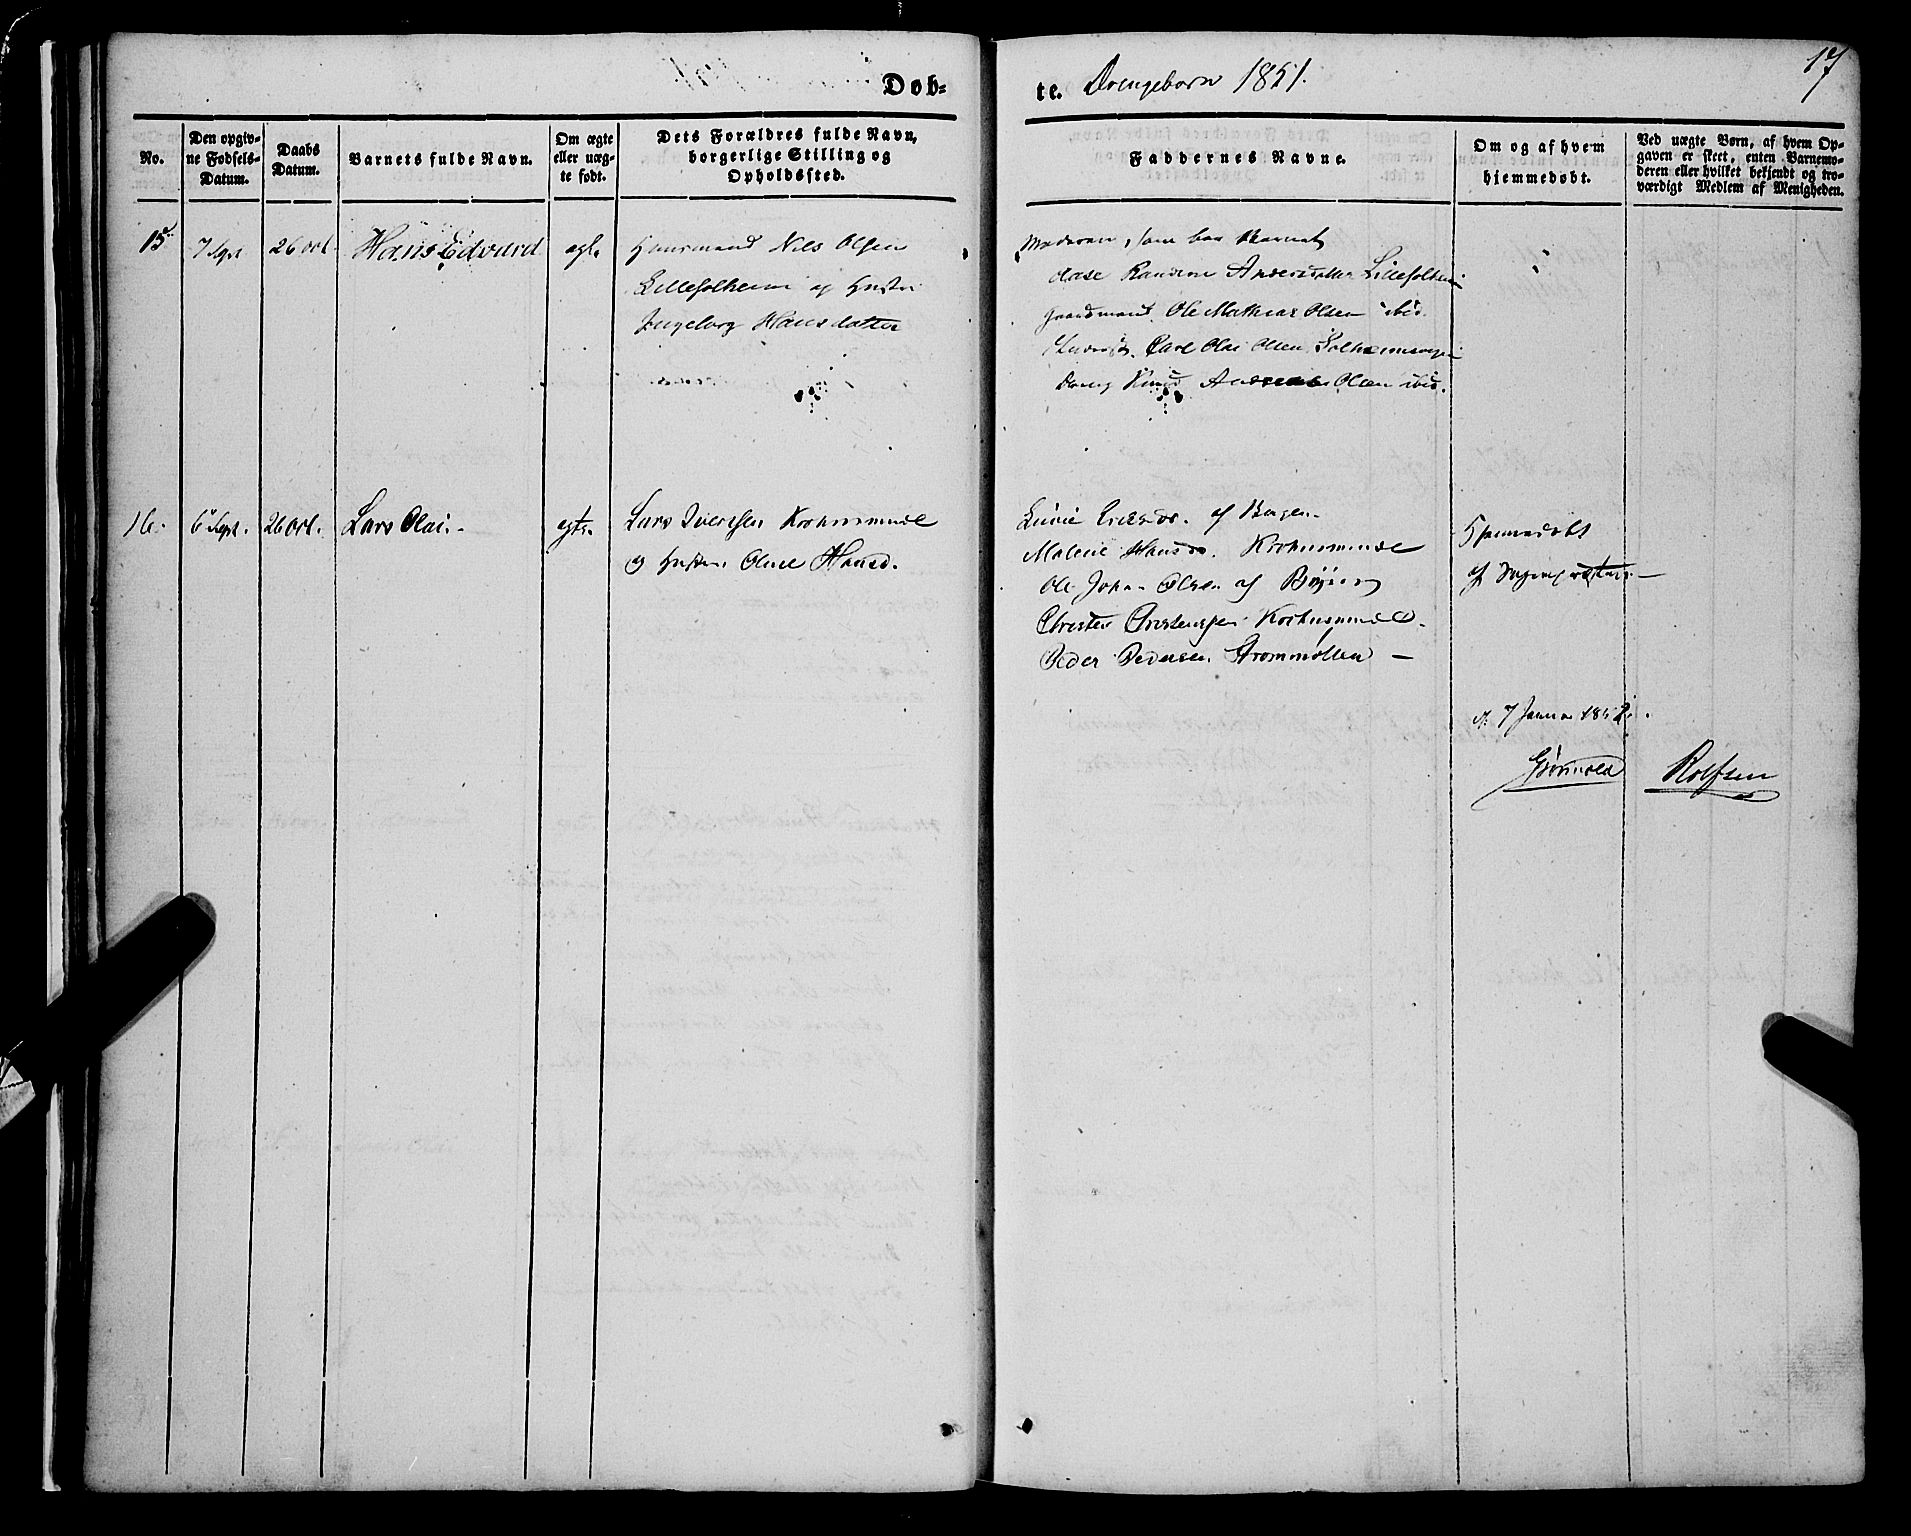 17
Døb-
te. Drengebørn 1851.
No.
Den opgiv-
ne Fødsels-
Datum.
Daabs
Datum.
Barnets fulde Navn.
Om ægte
eller uæg-
te født.
Dets Forældres fulde Navn,
borgerlige Stilling og
Opholdssted.
Faddernes Navne.
Om og af hvem
hjemmedøbt.
Ved uægte Børn, af hvem Op-
gaven er skeet, enten Barnemo-
deren eller hvilket bekjendt og tro-
værdigt Medlem af Menigheden.
15 7 Sept 26 Oct. Hans Edvard ægte
Huusmand Nils Olsen
og Hustru
Ingeborg Hansdatter
Moderen, som bar Barnet
Andersdatter
Gaardmand Ole Mathias Olsen ibid.
Carl Olai Olsen
Dreng Knud Andreas Olsen ibid.
16. 6 Sept. 26 Oct. Lars Olai. ægte.
Lars Iversen
og Hustru Oline Hansd.
af Bergen.
Malene Hansd.
Ole Johan Olsen af
Christen Christensen
Peder Pedersen Strømmøllen —
Hjemmedøbt
af
d. 7 Januar 1852.
Grønvold
Rolfsen